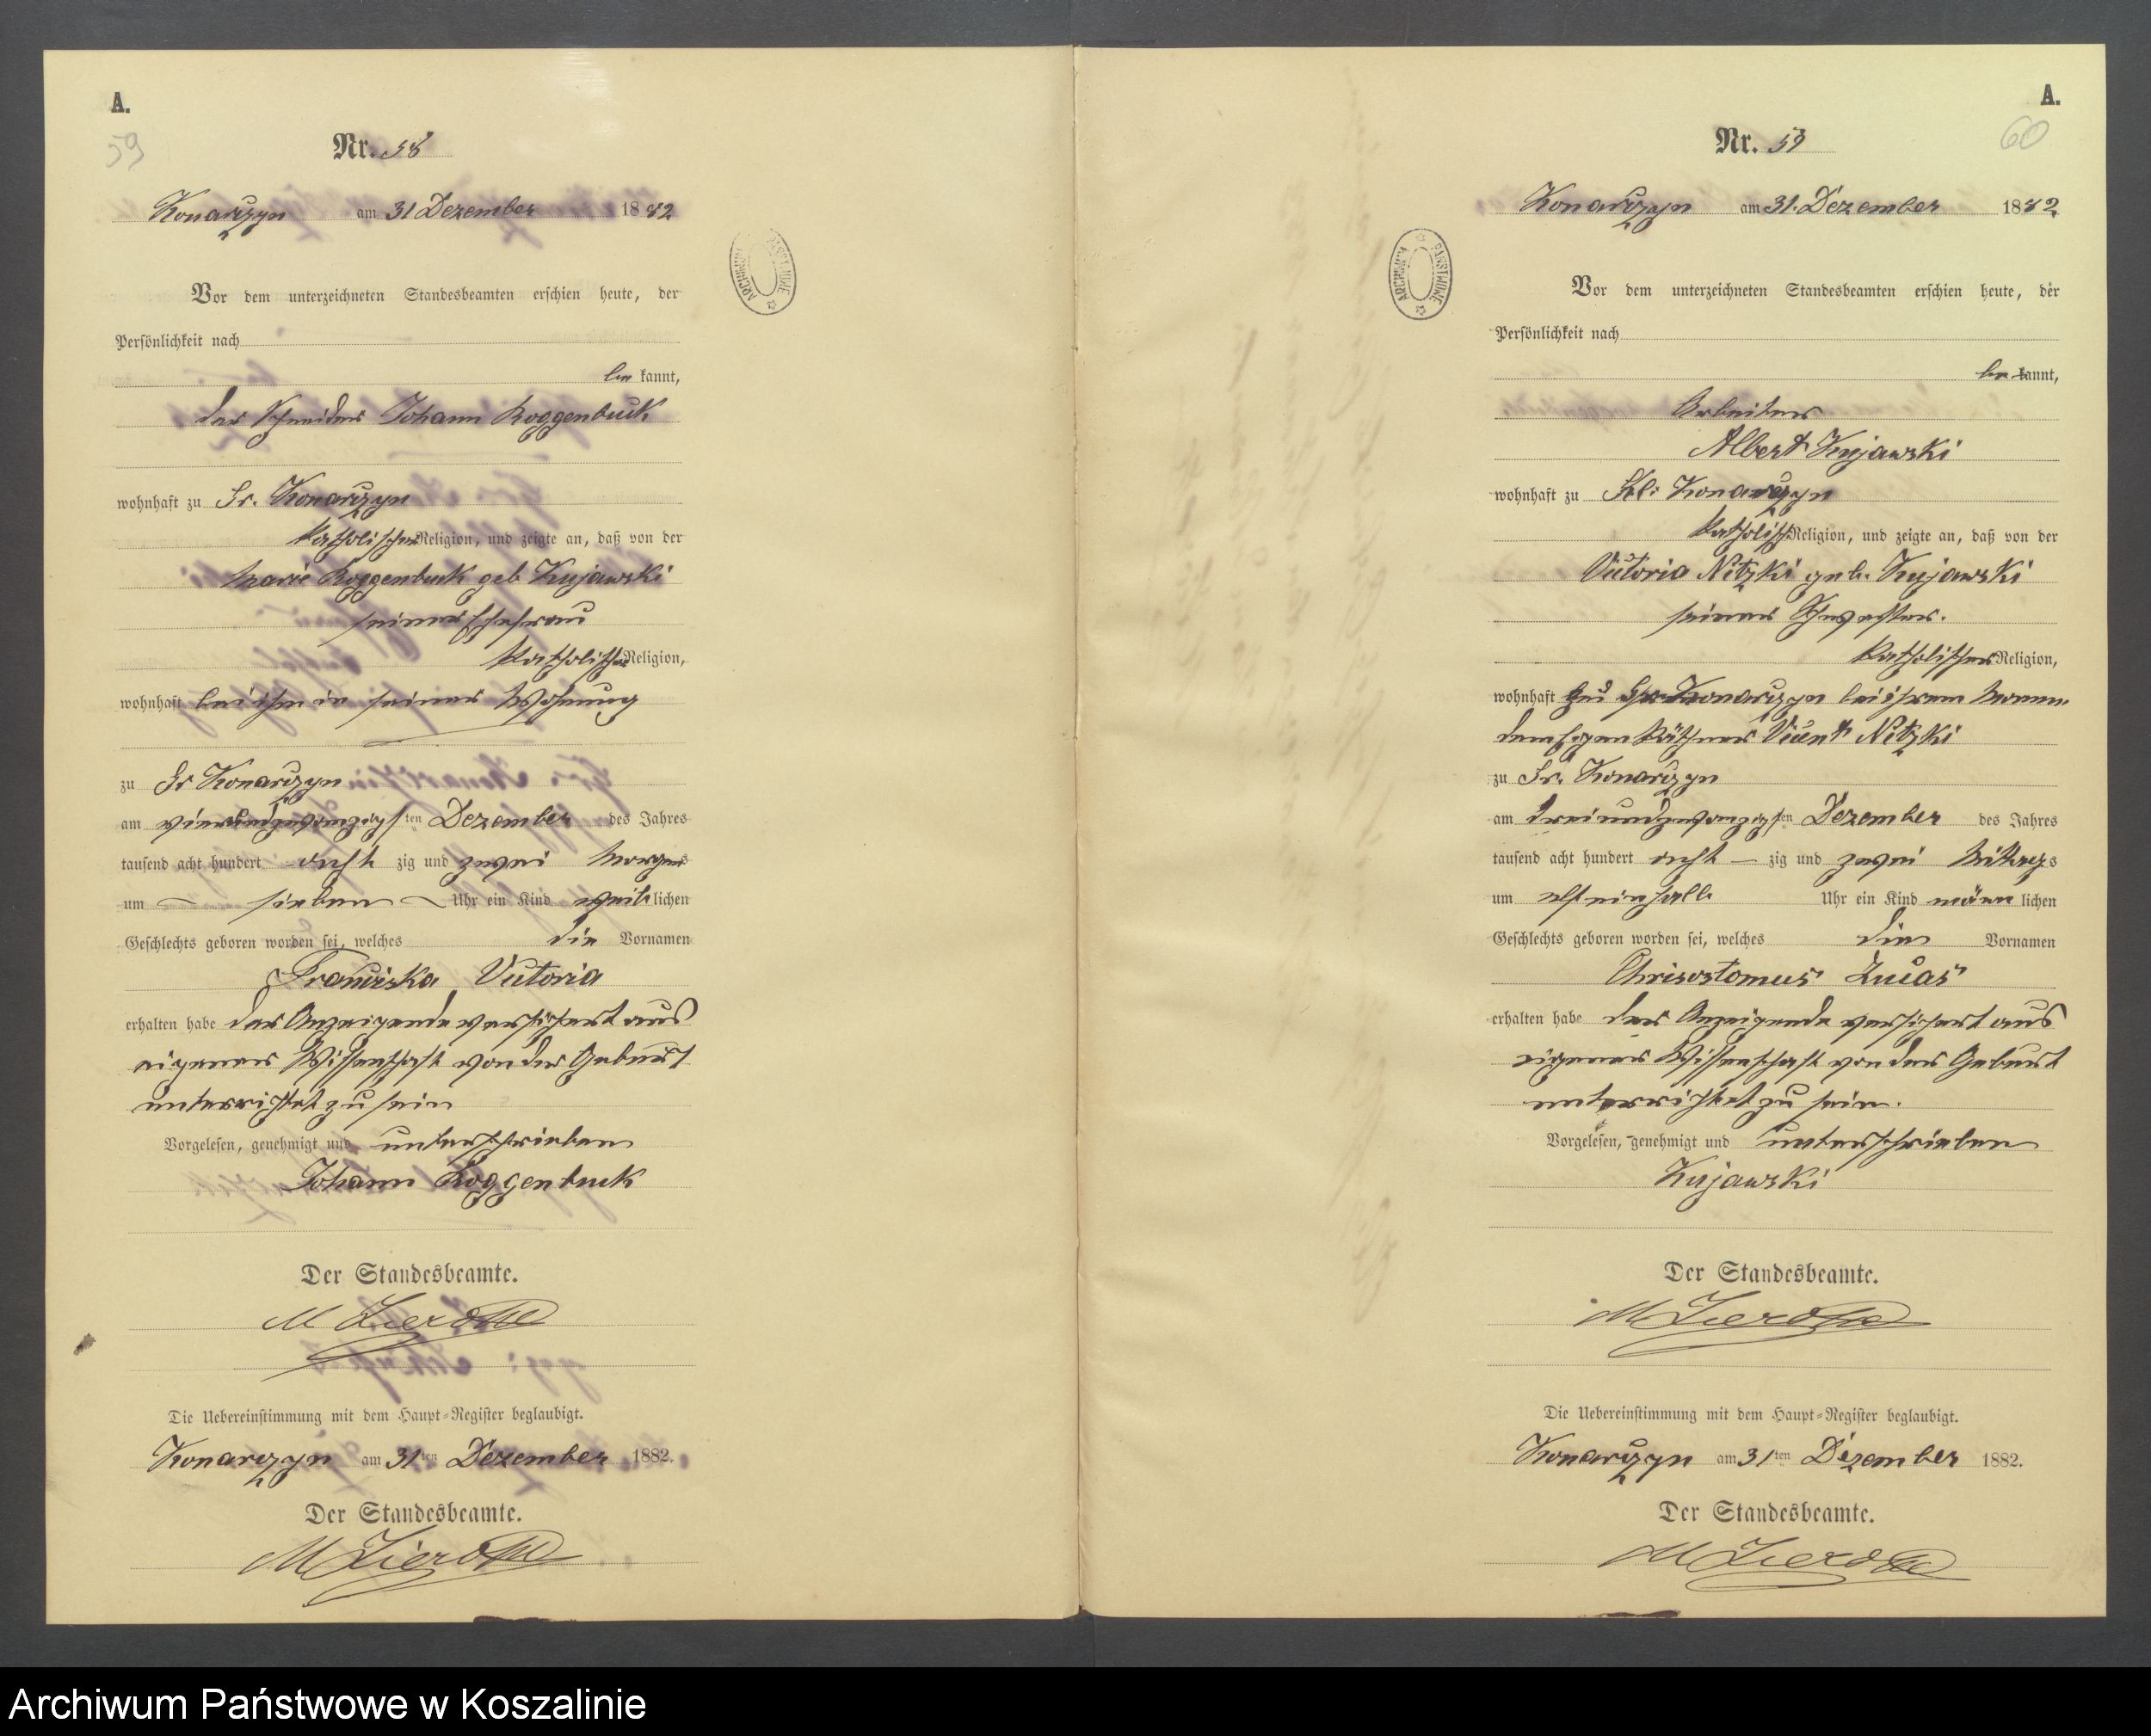 A.
59
Nr. 58
Konarczyn am 31 Dezember 1882
Vor dem unterzeichneten Standesbeamten erschien heute, der
Persönlichkeit nach
be kannt,
der Schneider Johann Roggenbuck
wohnhaft zu Gr. Konarczyn
katholischer Religion, und zeigte an, daß von der
Marie Roggenbuck geb Kujawski
seiner Ehefrau
katholischer Religion,
wohnhaft bei ihm in seiner Wohnung
zu Gr Konarczyn
am vierundzwanzigsten Dezember des Jahres
tausend acht hundert acht zig und zwei Morgens
um sieben Uhr ein Kind weib lichen
Geschlechts geboren worden sei, welches die Vornamen
Franciska Victoria
erhalten habe der Anzeigende versichert aus
eigener Wissenschaft von der Geburt
unterrichtet zu sein
Vorgelesen, genehmigt und unterschrieben
Johann Roggenbuck
Der Standesbeamte.
Die Uebereinstimmung mit dem Haupt-Register beglaubigt.
Konarczyn am 31ten Dezember 1882.
Der Standesbeamte.
ARCHIWUM PAŃSTWOWE
A.
60
Nr. 59
Konarczyn am 31. Dezember 1882
Vor dem unterzeichneten Standesbeamten erschien heute, der
Persönlichkeit nach
be kannt,
Arbeiter
Albert Kujawski
wohnhaft zu Kl: Konarczyn
katholisch Religion, und zeigte an, daß von der
Victoria Nitzki geb. Kujawski
seiner Schwester.
katholischer Religion,
wohnhaft zu Gr Konarczyn bei ihrem Manne
dem Eigenkäthner Vicent Nitzki
zu Gr. Konarczyn
am dreiundzwanzigsten Dezember des Jahres
tausend acht hundert acht zig und zwei Mittags
um elfeinhalb Uhr ein Kind männ lichen
Geschlechts geboren worden sei, welches die Vornamen
Chrisostomus Lucas
erhalten habe der Anzeigende versichert aus
eigener Wissenschaft von der Geburt
unterrichtet zu sein.
Vorgelesen, genehmigt und unterschrieben
Kujawski
Der Standesbeamte.
Die Uebereinstimmung mit dem Haupt-Register beglaubigt.
Konarczyn am 31ten Dezember 1882.
Der Standesbeamte.
ARCHIWUM PAŃSTWOWE
Archiwum Państwowe w Koszalinie